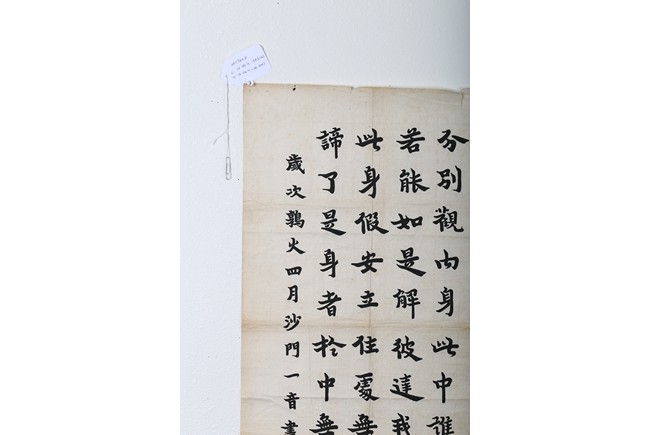 分別觀內身此中誰
若能如是解彼達我
此身假安立住處無
諦了是身者於中無
歲次鶉火四月沙門一音書